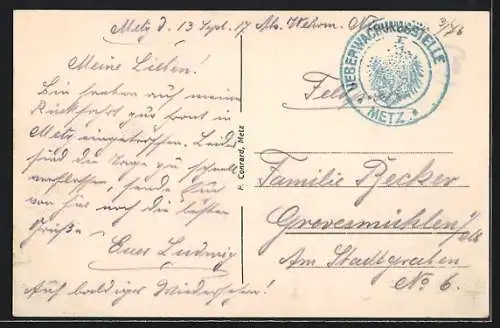 Metz d. 13 Sept. 17 Abs. Wehrm.
3/76
Meine Lieben!
Bin soeben auf meiner
Rückfahrt zur Front in
Metz eingetroffen. Leider
sind die Tage zu schnell
verflossen, sende Euch
von hier noch die besten
Grüße
Euer Ludwig
Auf baldiges Wiedersehen!
P. Conrard, Metz
UEBERWACHUNGSSTELLE
* METZ. *
Familie Becker
Grevesmühlen i/
Am Stadtgraben
No 6.